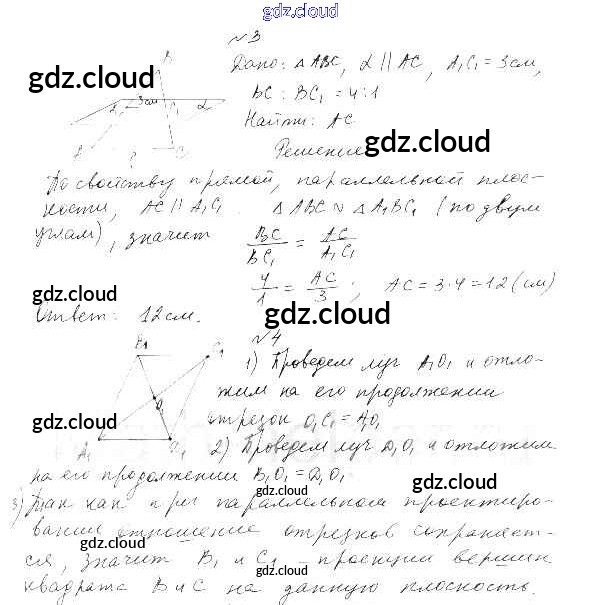 gdz.cloud
№3
Дано: △ABC, α || AC, A₁C₁ = 3см,
gdz.cloud
BC : BC₁ = 4:1
Найти: AC
gdz.cloud
Решение
B
3см
α
C
?
По свойству прямой, параллельной плос-
кости, AC || A₁C₁ △ABC ∾ △A₁BC₁ (по двум
углам), значит BC/BC₁ = AC/A₁C₁
4/1 = AC/3; AC = 3·4 = 12 (см)
gdz.cloud
gdz.cloud
Ответ: 12см.
№4
1) Проведем луч A₁O₁ и отло-
жим на его продолжении
отрезок O₁C₁ = A₁O₁
gdz.cloud
gdz.cloud
2) Проведем луч D₁O₁ и отложим
на его продолжении B₁O₁ = D₁O₁
gdz.cloud
3) Так как при параллельном проектиро-
gdz.cloud
вании отношение отрезков сохраняет-
gdz.cloud
ся, значит B₁ и C₁ – проекции вершин
gdz.cloud
квадрата B и C на данную плоскость.
gdz.cloud